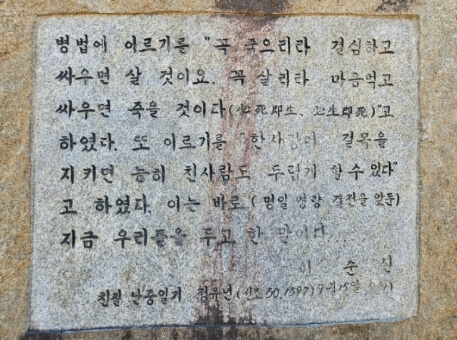 병법에 이르기를 "꼭 죽으리라 결심하고
싸우면 살 것이요. 꼭 살리라 마음먹고
싸우면 죽을 것이다(必死即生, 必生即死)"고
하였다. 또 이르기를 "한사람이 길목을
지키면 능히 천사람도 두렵게 할 수 있다"
고 하였다. 이는 바로 (명일 명량 결전을 앞둔)
지금 우리들을 두고 한 말이다.
이 순 신
친필 난중일기 정유년(선조30,1597) 9월15일